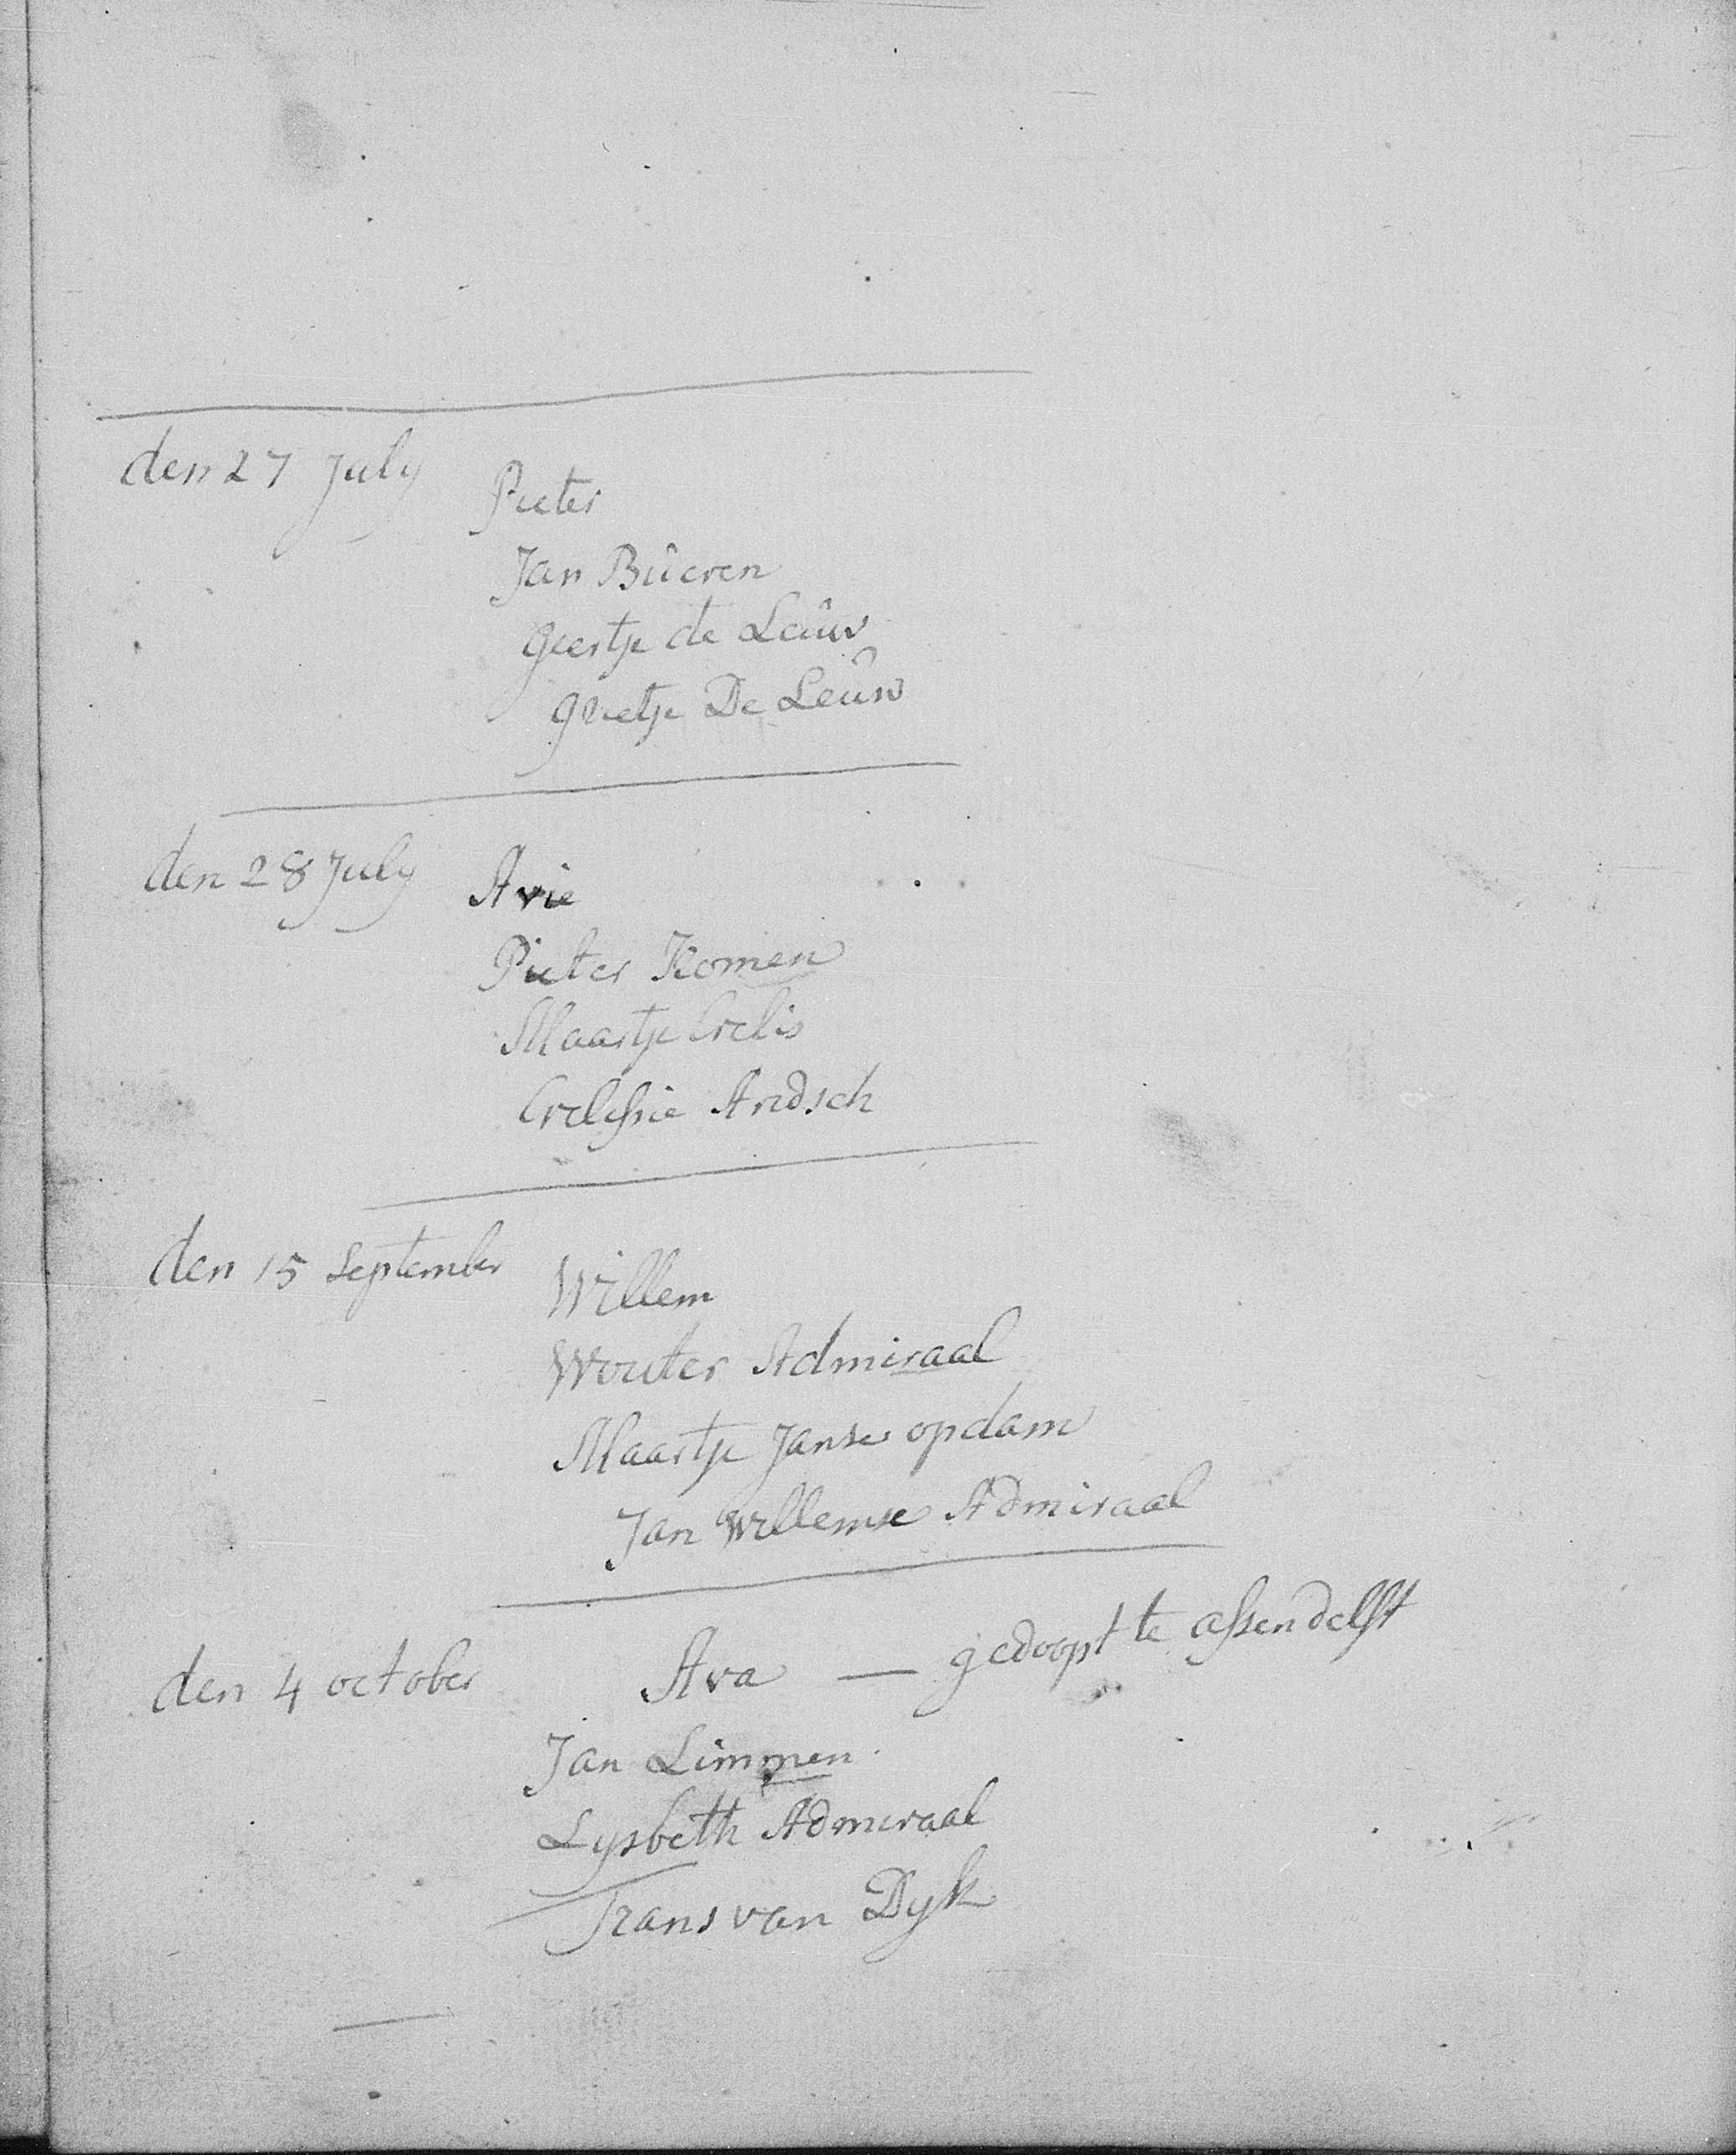 den 27 July
Pieter
Jan Bûeren
Geertje de Leûw
Grietje De Leûw
den 28 July
Arie
Pieter Komen
Maartje Crelis
Crelissie Aridsch
den 15 September
Willem
Wouter Admiraal
Maartje Janse opdam
Jan Willemse Admiraal
den 4 october Ava — gedoopt te assendelft
Jan Limmen
Lysbeth Admiraal
Frans van Dyk